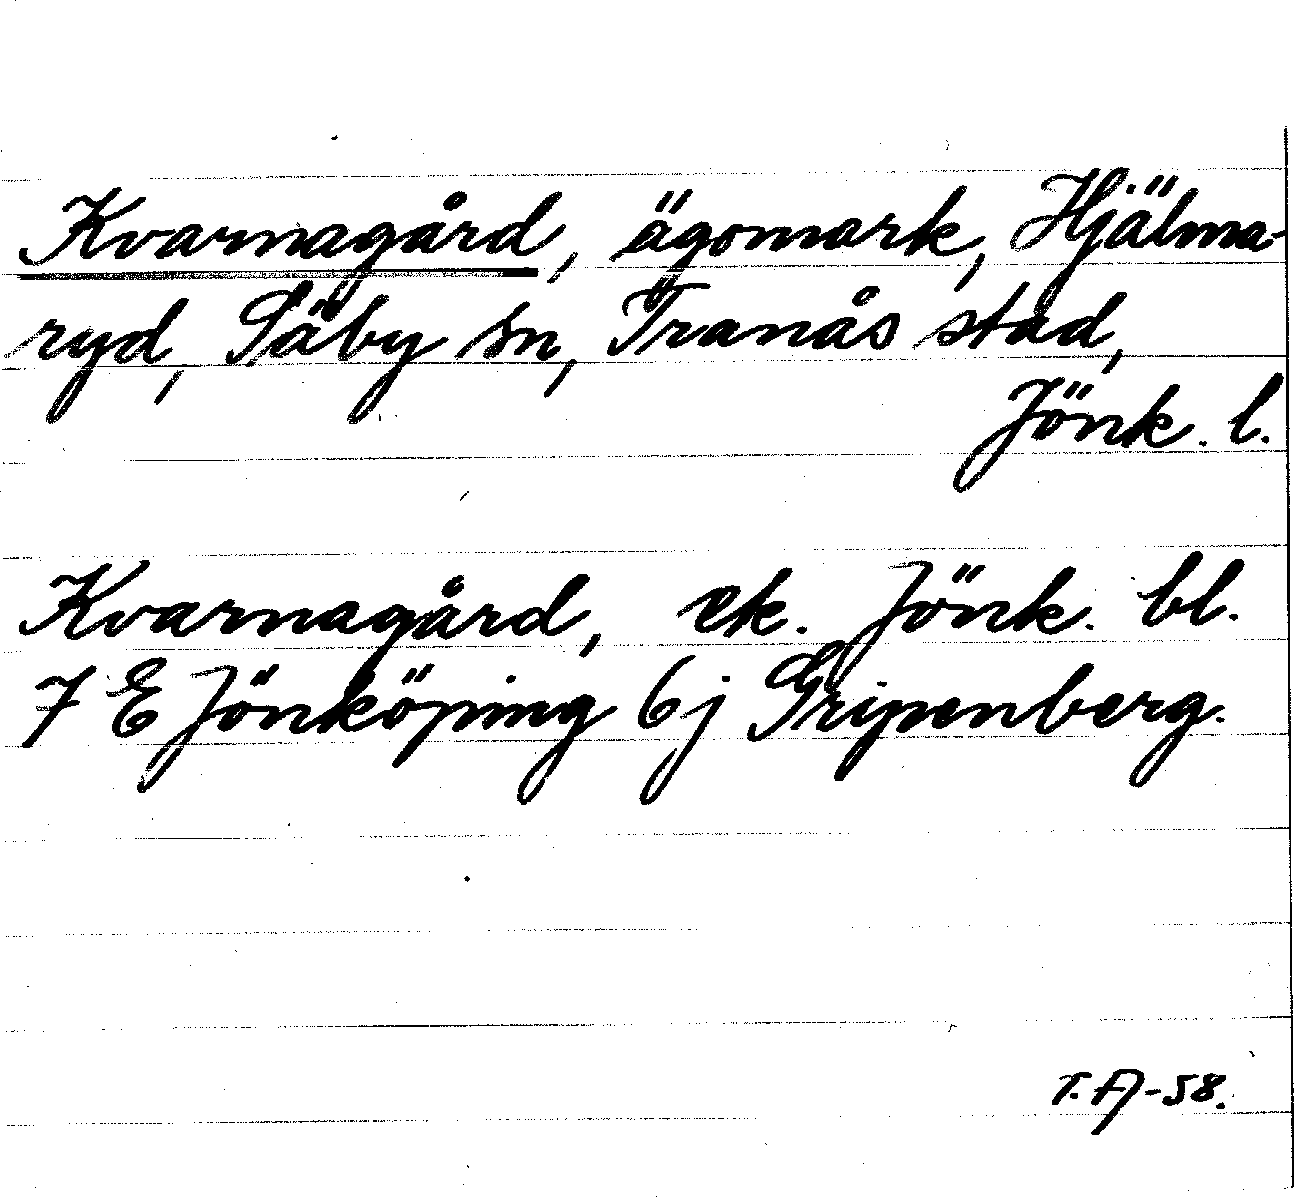 Kvarnagård, ägomark, Hjälma-
ryd, Säby sn, Tranås stad,
Jönk. l.
Kvarnagård, ek. Jönk. bl.
7 E Jönköping 6j Gripenberg.
T. A-58.